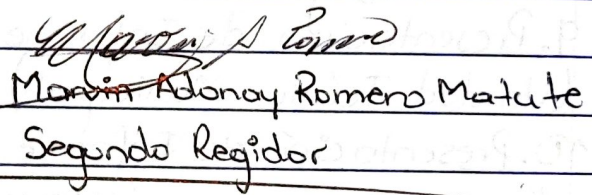 Marvin Adonay Romero Matute
Segundo Regidor